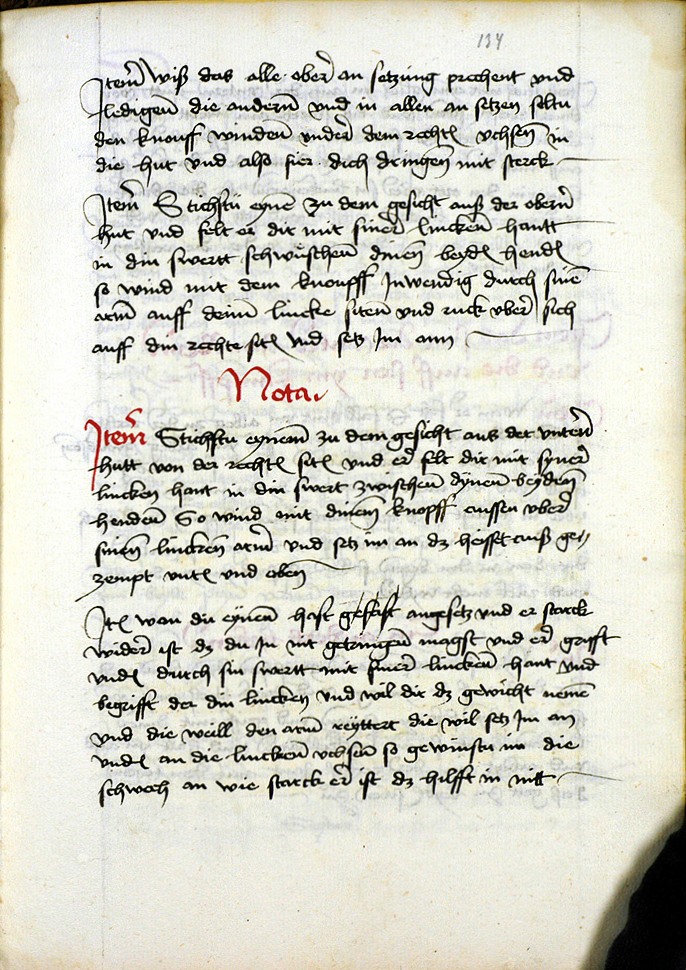 134
Item wiß das alle ober an setzung prechent vnd
ledigenn die andernn vnd in allen an setzen soltu
den knouff windenn vnder dem rechtn vchsen in
die hut vnd also fier dich dringen mit sterck
Item Stichstu eyne zu dem gesicht auß der obern
hut vnd felt er dir mit siner linckenn hantt
in din swertt schwüschenn dinen beydn hendn
so wind mit dem knoupff Inwendig durch sine
arm auff deinn lincke sitenn vnd ruck vber sich
auff din rechte sitn vnd setz Im ann
Nota
Item Stichstu eynem zu dem gesicht aus der vntern
hutt von der rechtn sitn vnd er felt dir mit syner
lincken hant in din swert zwischenn dynen beyden
hendenn So wind mit dinem knopff aussen vber
sinen linckenn arm vnd setz im an dz heisset auß ge
zempt vntn vnd oben
Itn wan du eynem hast angesetz vnd er starck
wider ist dz du In nit getringen magst vnd er grifft
vndn durch sin swertt mit siner linckenn hant vnd
begrifft der din lincken vnd wil dir dz gewicht nemen
vnd die weill den arm reyttert die wil setz Im an
vndn an die linckenn vchsen so gewinstu im die
schwech an wie starck er ist dz hilfft in nitt